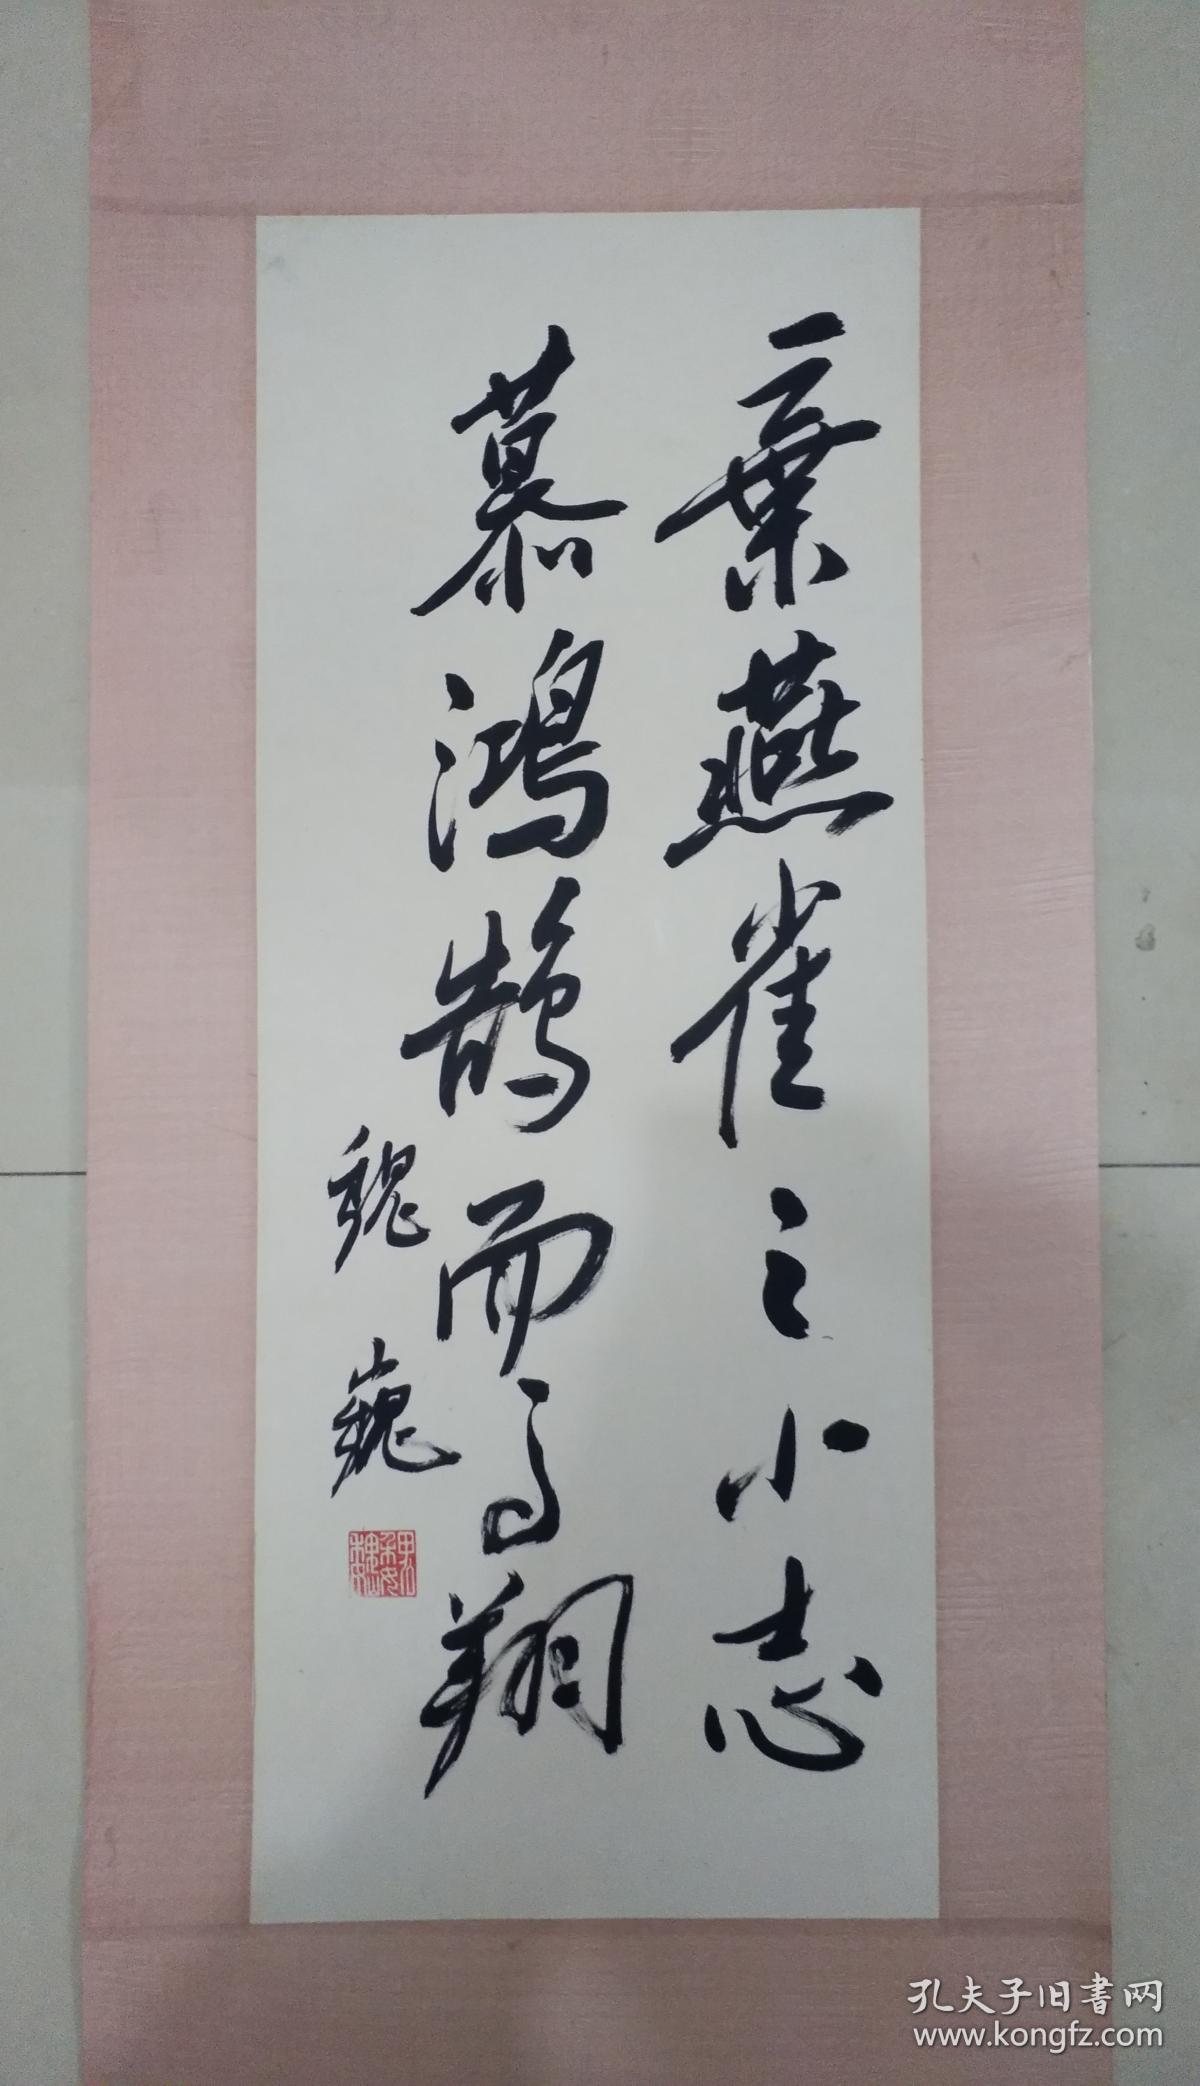 棄燕雀之小志
慕鴻鵠而高翔
魏巍
孔夫子旧書网
www.kongfz.com